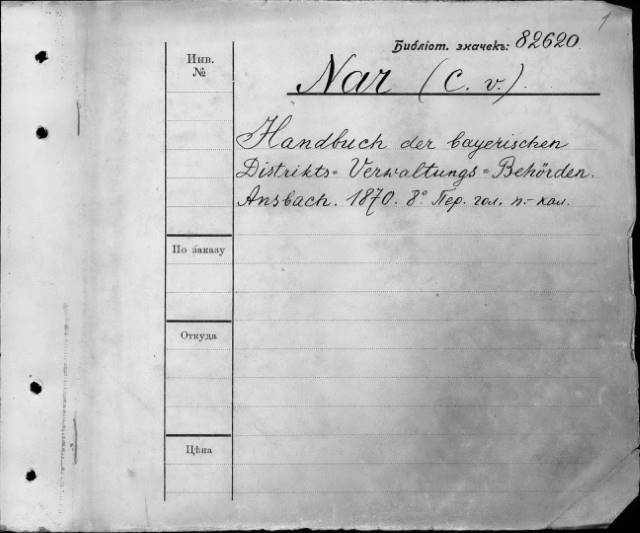 1
Библіот. значекъ: 82620.
Инв.
№
Nar (C. v.).
Handbuch der bayerischen
Distrikts= Verwaltungs=Behörden.
Ansbach. 1870. 8° Пер. гол. п.-кал.
По заказу
Откуда
Цѣна